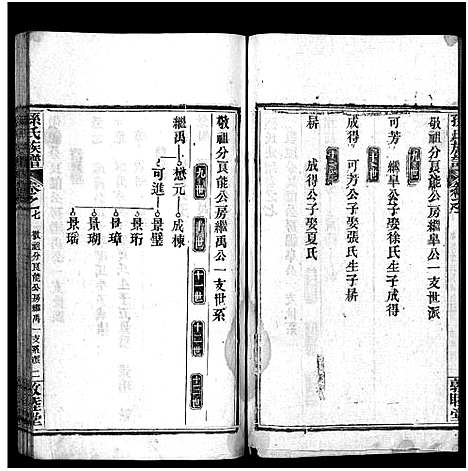 敬祖分良能公房繼皐公一支世派
九世
可芳 繼皐公子娶徐氏生子成得
十世
成得 可芳公子娶張氏生子耕
十一世
耕 成得公子娶夏氏
孫氏族譜
敦睦堂
敬祖分良能公房繼禹公一支世系
九世 十世 十一世 十二世 十三世
繼禹 懋元 成棟 景璧
可進 景珩
景璋
景瑚
景瑶
孫氏族譜
卷之七
敬祖分良能公房繼禹一支系派
二 敦睦堂